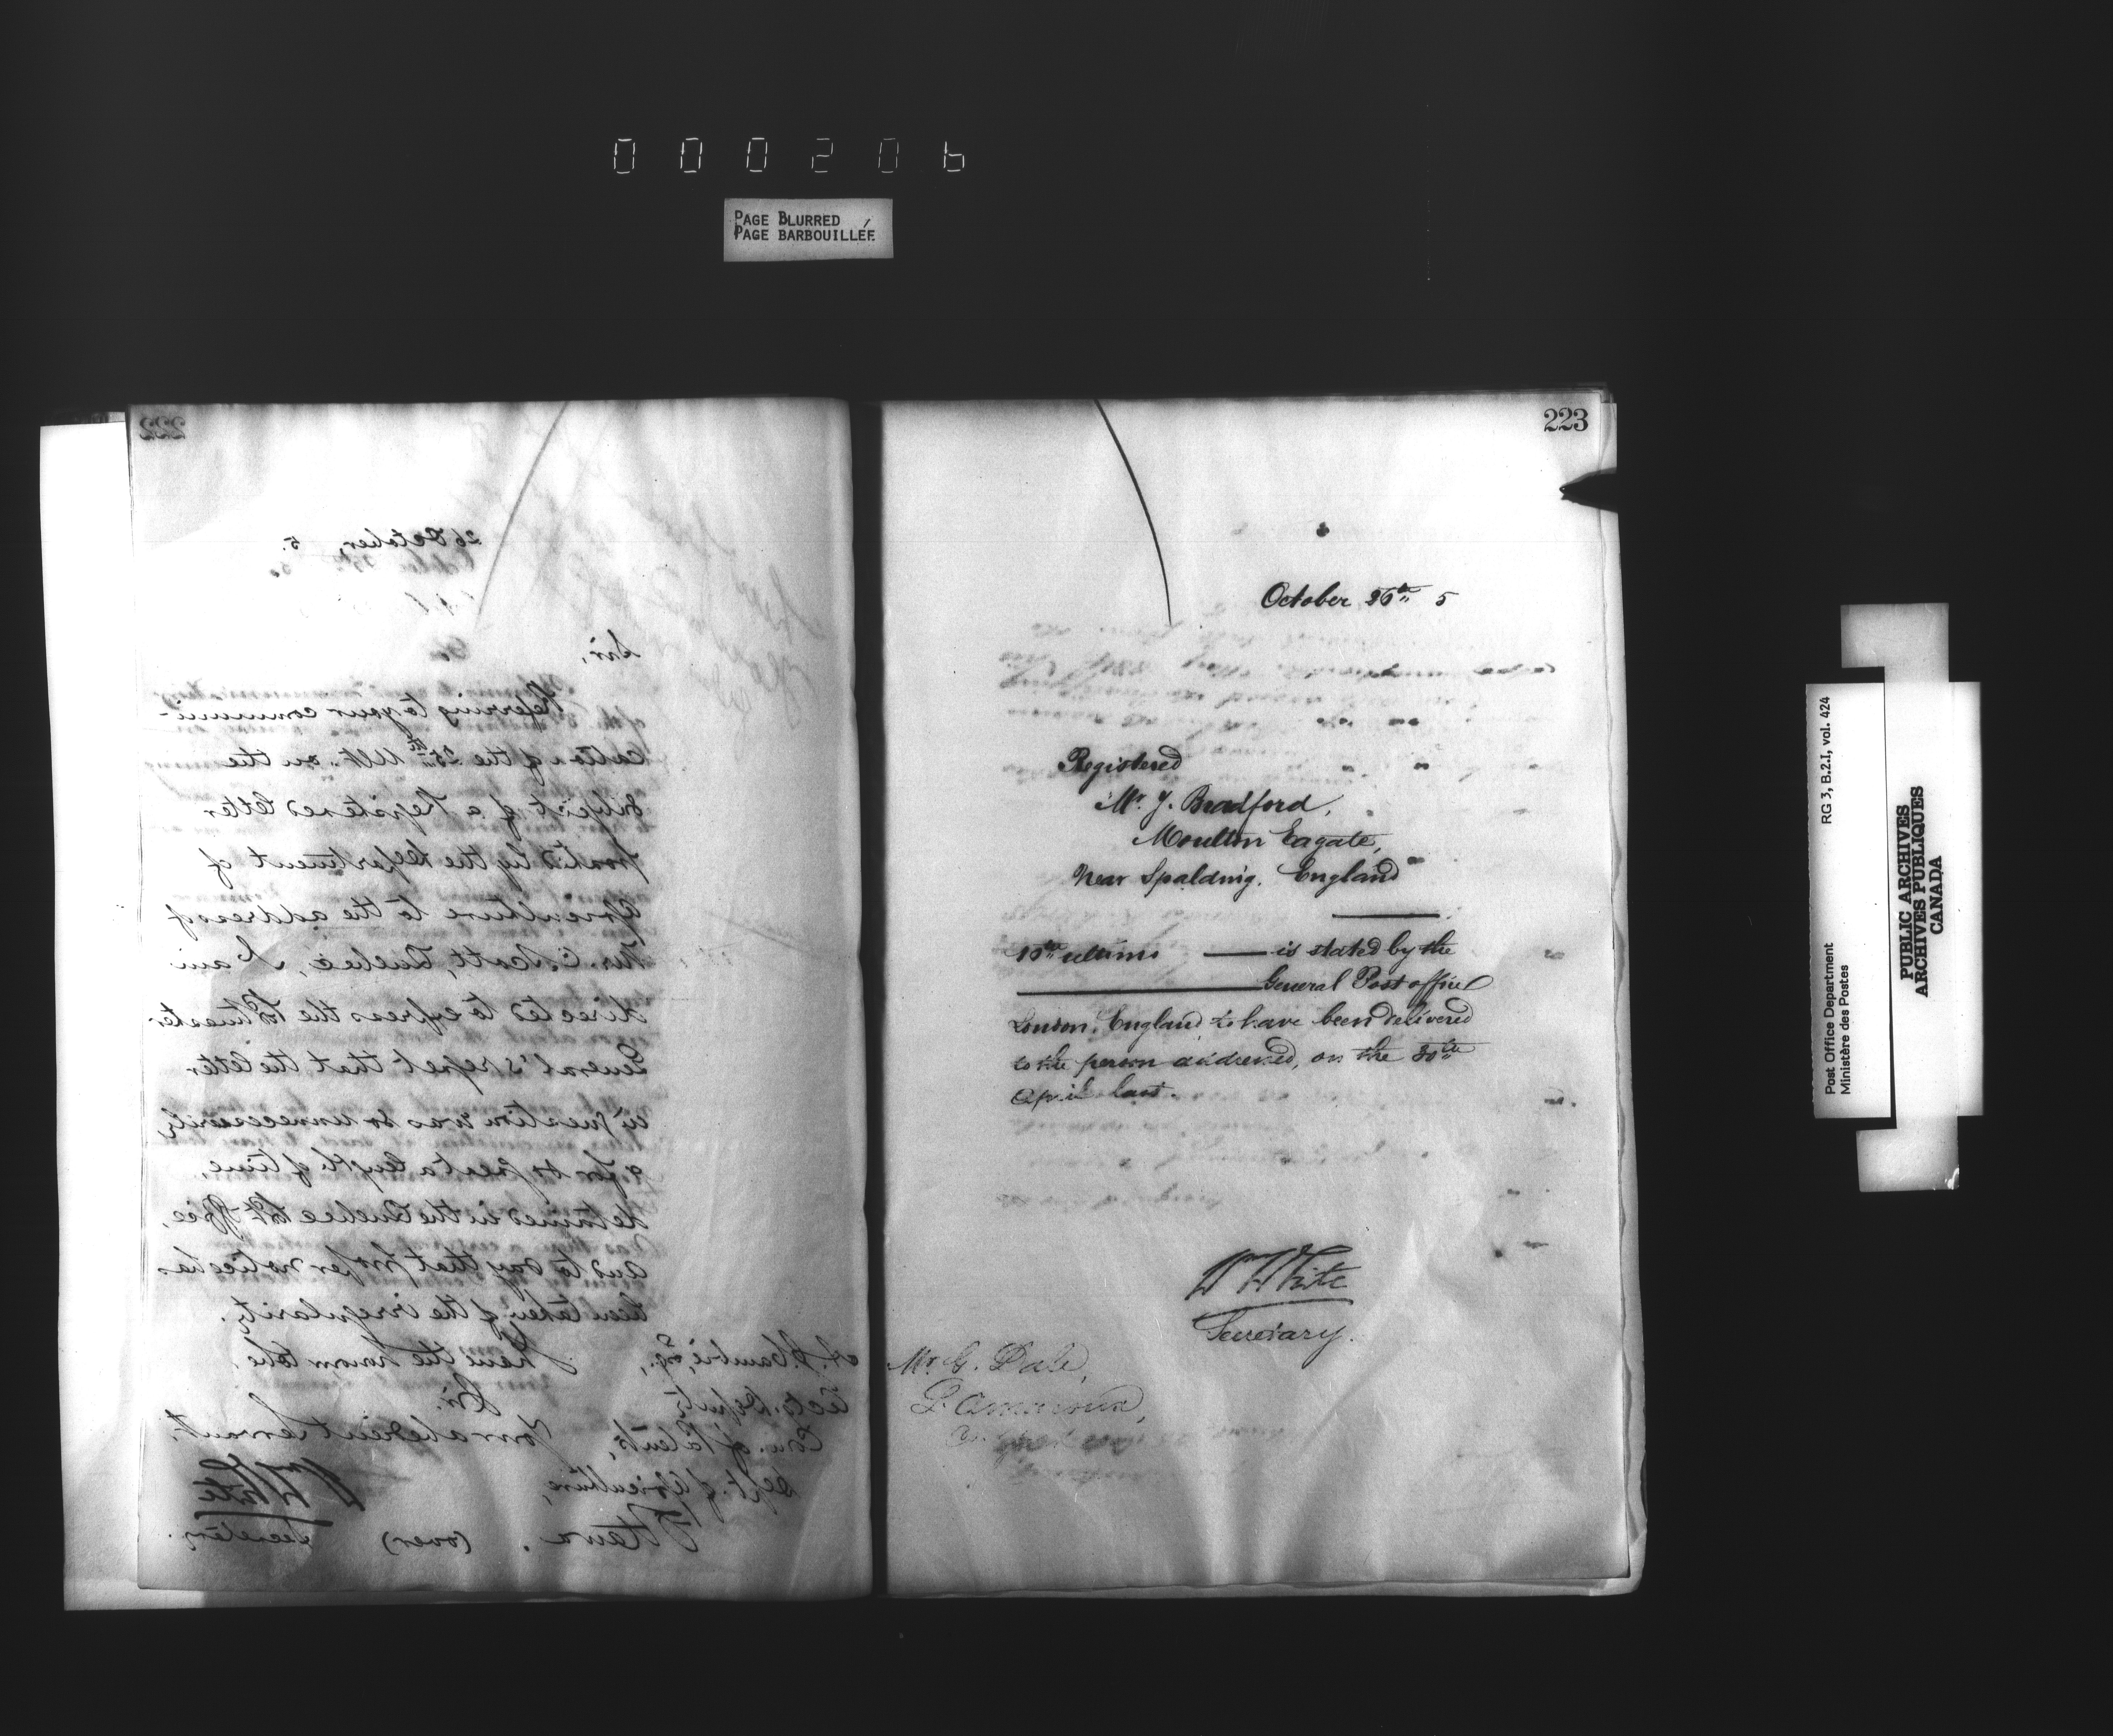 000206
PAGE BLURRED
PAGE BARBOUILLÉE
222
26 October, 5.
Sir,
Referring to your communi-
cation of the 25th Ult. on the
subject of a Registered letter
posted by the Department of
Agriculture to the address of
Mr. C. Scott, Quebec, I am
directed to express the Postmaster
General's regret that the letter
in question was so unnecessarily,
& for so great a length of time,
detained in the Quebec Post Office,
and to say that proper notice has
been taken of the irregularity.
I have the honor to be,
Sir,
Your obedient Servant.
Wm White
Secretary.
Esq.,
Deputy
Com. of Patents,
Dept. of Agriculture,
Ottawa.
(over)
223
October 26th 5
Registered
Mr. J. Bradford,
Moulton Eagate,
Near Spalding. England
10th ultimo — is stated by the
General Post office
London, England to have been delivered
to the person addressed, on the 30th
April last.
Wm White
Secretary.
Mr. G. Dale,
RG 3, B.2.I, vol. 424
Post Office Department
Ministère des Postes
PUBLIC ARCHIVES
ARCHIVES PUBLIQUES
CANADA